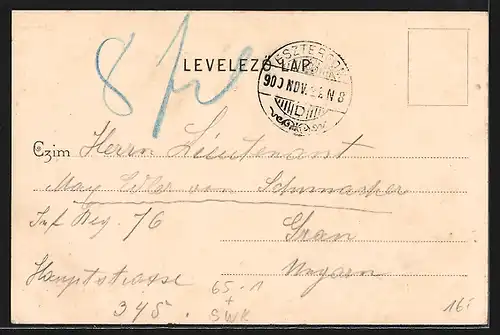 8/W
LEVELEZŐ-LAP.
ESZTERGOM
900 NOV. 22 N 8
D
Czim Herrn Lieutenant
May Edler von Schumacher
Inf Reg. 76
Gran
Ungarn
Hauptstrasse
345.
65.-1
+
SWK
16.-